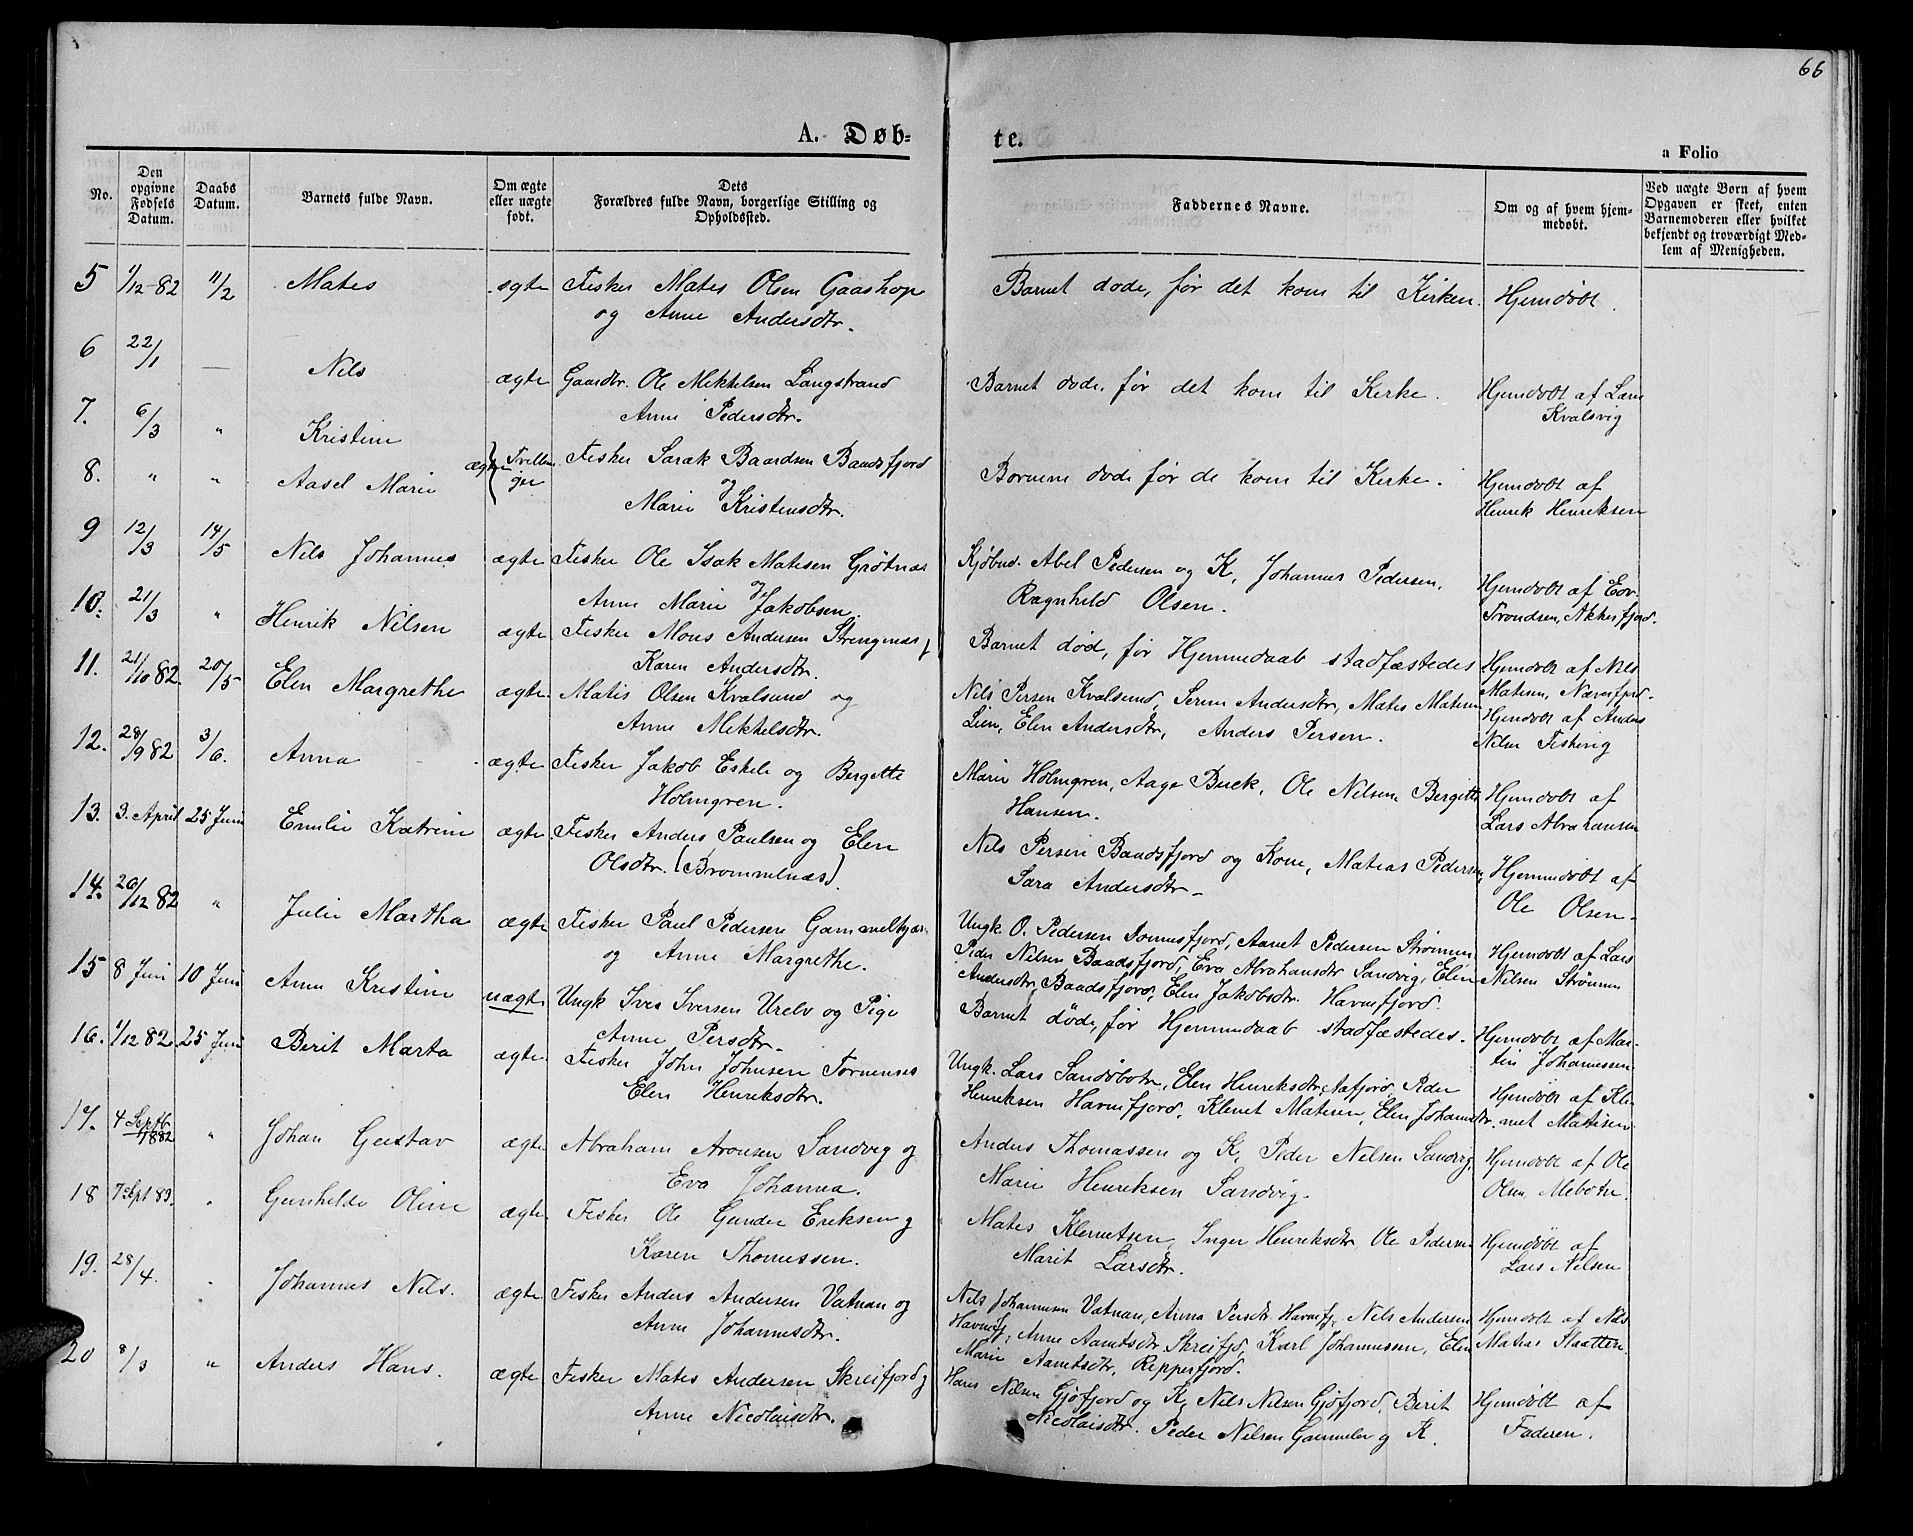 66
A. Døb-
te.
a Folio
No.
Den opgivne Fødsels Datum.
Daabs Datum.
Barnets fulde Navn.
Om ægte eller uægte født.
Dets Forældres fulde Navn, borgerlige Stilling og Opholdssted.
Faddernes Navne.
Om og af hvem hjemmedøbt.
Ved uægte Børn af hvem Opgaven er skeet, enten Barnemoderen eller hvilket bekjendt og troværdigt Medlem af Menigheden.
5 1/12-82 11/2 Mates ægte Fisker Mates Olsen Gaashop Barnet døde, før det kom til Kirken. Hjemdøbt.
og Anne Andersdtr.
6 22/1 — Nils ægte Gaardbr. Ole Mikkelsen Langstrand Barnet døde, før det kom til Kirke. Hjemdøbt af Lars
Anne Pedersdtr. Kvalsvig
7. 6/3 " Kristine
8. " " Aasel Marie ægte Tvillinger Fisker Sarak Baardsen Baadsfjord Børnene døde før de kom til Kirke. Hjemdøbt af
og Marie Kristensdtr. Henrik Henriksen
9 12/3 14/5 Nils Johannes ægte Fisker Ole Isak Matisen Grøtnæs Kjøbmd. Abel Pedersen og K, Johannes Pedersen, Hjemdøbt af
og Anne Marie Jakobsen. Ragnhild Olsen. Trondsen, Akkerfjord.
10. 21/3 " Henrik Nilsen ægte Fisker Mons Andersen Strengenæs Barnet død, før Hjemmedaab stadfæstedes Hjemdøbt af Nils
Karen Andersdtr. Matisen, Næverfjord.
11. 21/10 82. 20/5 Elen Margrethe ægte Matis Olsen Kvalsund og Nils Persen Kvalsund, Seren Andersdtr, Mates Matisen Hjemdøbt af Anders
Anne Mikkelsdtr. Lien, Elen Andersdtr, Anders Persen. Nilsen Fiskevig
12. 28/9 82 3/6. Anna ægte Fisker Jakob Eskele og Bergette Marie Holmgren, Aage Buck, Ole Nilsen, Bergitte Hjemdøbt af
Holmgren. Hansen. Lars Abrahamsen
13. 3. April 25 Juni Emilie Katrine ægte Fisker Anders Paulsen og Elen Nils Persen Baadsfjord og Kone, Matias Pedersen, Hjemmedøbt af
Olsdtr. (Brommelnæs). Sara Andersdtr. Ole Olsen
14. 26/12 82 " Julie Martha ægte Fisker Paul Pedersen Ungk. O. Pedersen Aamet Pedersen Strømmen Hjemdøbt af Lars
og Anne Margrethe. Peder Nilsen Baadsfjord, Eva Abrahamsdtr Sandvig, Elen Nilsen Strømmen
Andersdtr, Baadsfjord, Elen Jakobsdtr. Havnefjord.
15 8 Juni 10 Juni Anne Kristine uægte Ungk Ivers Iversen Urelv og Pige Barnet døde, før Hjemmedaab stadfæstedes. Hjemdøbt af Mar-
Anne Persdtr. tin Johannessen
16. 1/12 82. 25 Juni Berit Marta ægte Fisker John Johnsen Tornenses Ungk. Lars Sandøbotn, Elen Henriksdtr, Aafjord, Peder Hjemdøbt af Kle-
Elen Henriksdtr. Henriksen Havnefjord, Klemet Matisen, Elen Johannsdtr. met Mattisen
17. 4 Septb. 1882 " Johan Gustav ægte Abraham Aronsen Sandvig og Anders Thomassen og K, Peder Nilsen Sandvig, Hjemdøbt af Ole
Eva Johanna. Marie Henriksen Sandvig. Olsen, Mebotn.
18 7 Sept 83. " Gunhilde Oline ægte Fisker Ole Gunder Eriksen og Mates Klemetsen, Inger Henriksdtr Ole Pedersen Hjemdøbt af
Karen Thomassen. Marit Larsdtr. Lars Nilsen
19. 28/4. " Johannes Nils. ægte Fisker Anders Andersen Vatnan og Nils Johannesen Vatnan, Anna Persdtr Havnefj, Nils Andersen Hjemdøbt af Nils
Anne Johannesdtr. Havnefj, Anne Aamtsdtr. Skreifjd, Karl Johannessen, Elen Matias Slaatten.
Marie Aamtsdtr, Repperfjord.
20 8/3 " Anders Hans. ægte Fisker Mates Andersen Skreifjord og Hans Nilsen Gjøfjord og K, Nils Nilsen Gjøfjord, Berit Hjemdøbt af
Anne Nicolaisdtr. Nicolaisdtr. Peder Nilsen Gammelv og K. Faderen.